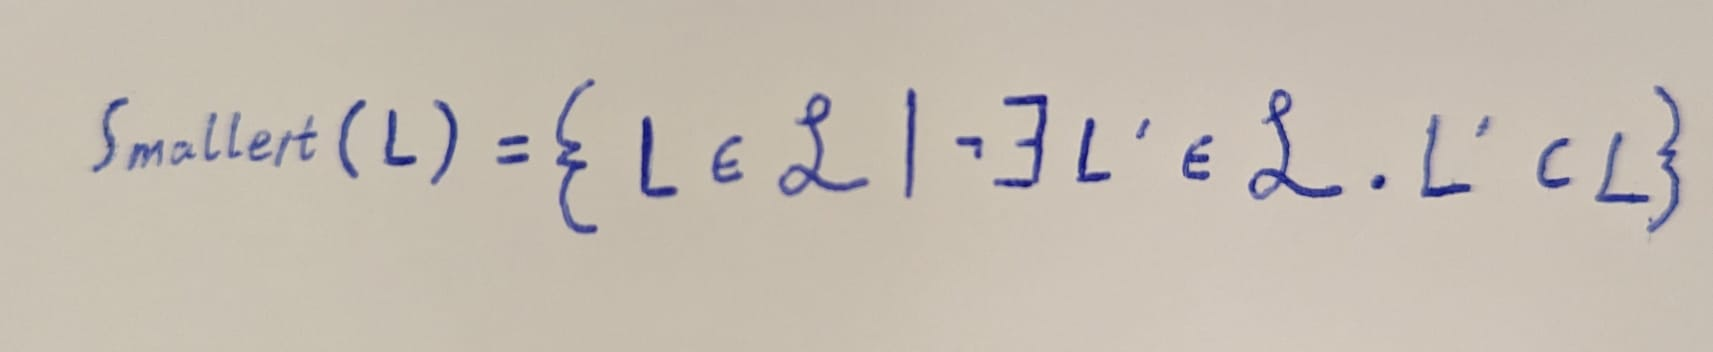 Smallest(L) = {L ∈ ℒ | ¬∃L' ∈ ℒ. L' ⊂ L}